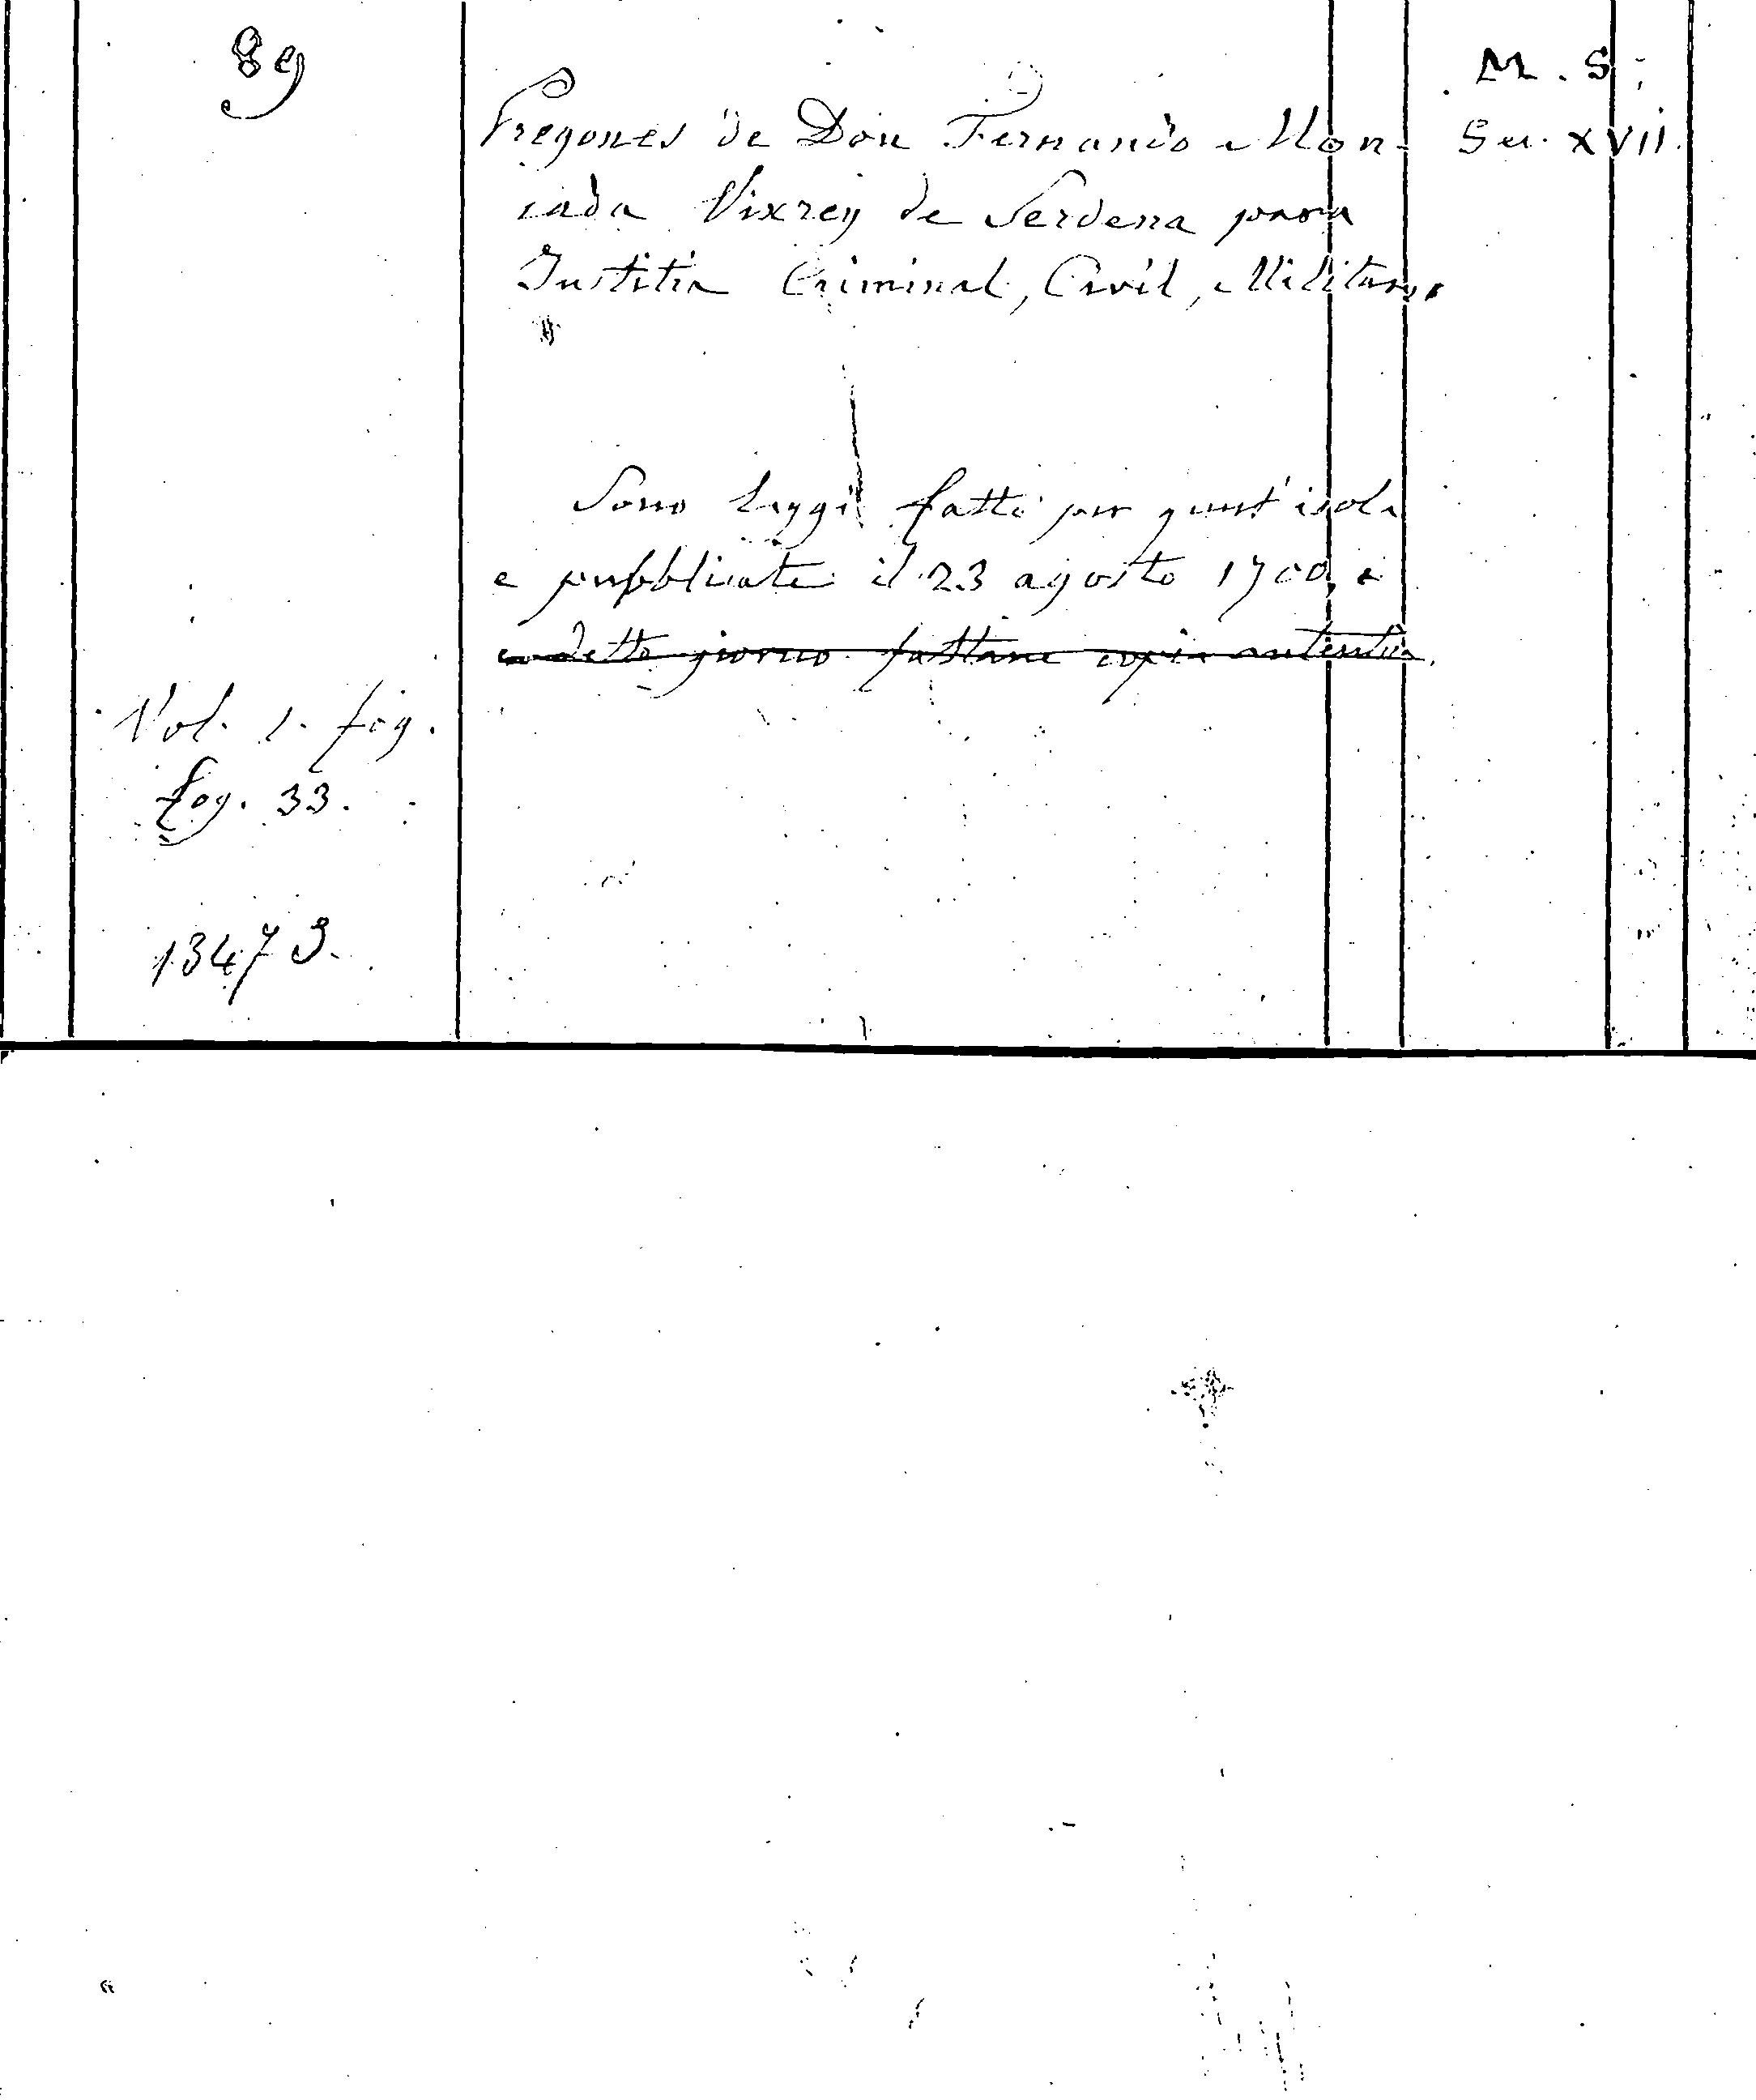 89
Pregones de Don Fernando Mon-
cada Vixrey de Serdena para
Justitia Criminal, Civil, Militar,
Sono Leggi fatte per quest'isola
e pubblicate il 23 agosto 1700, e
detto giorno fattane copia autentica.
M. S.
Sec. XVII.
Vol. 1. fog.
fog. 33.
13473.